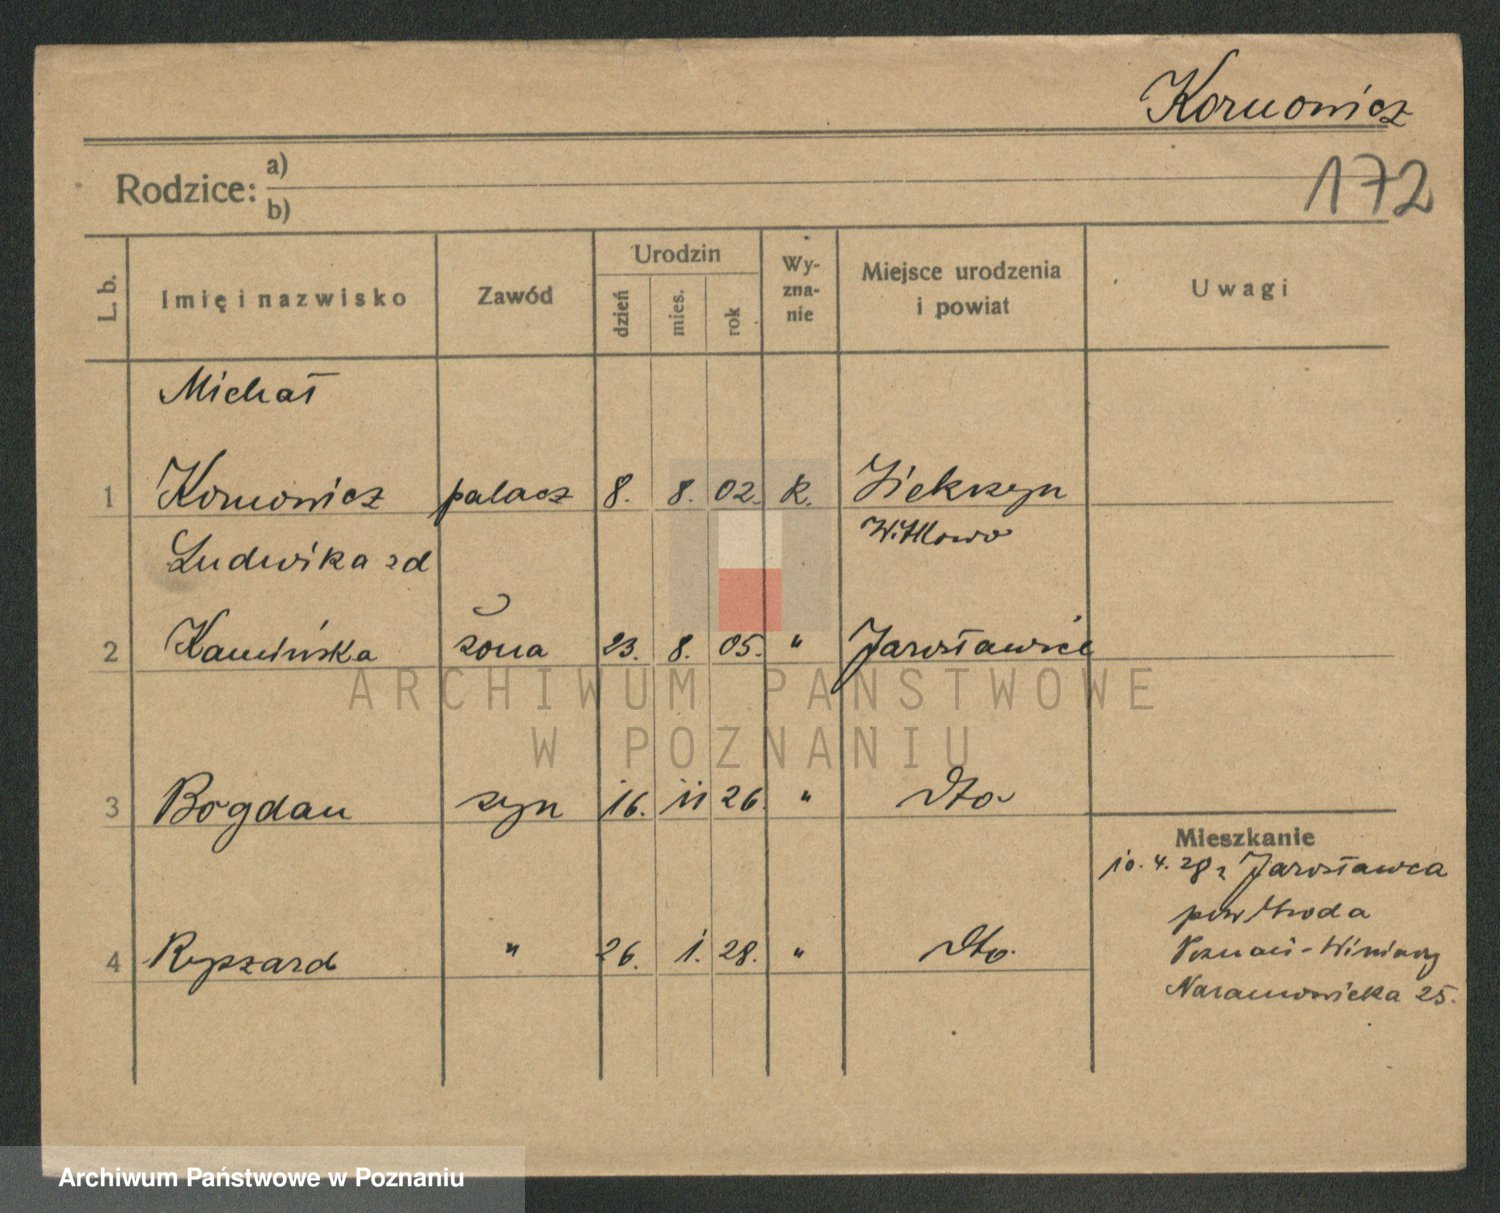 Kornowicz
172
Rodzice: a)
b)
L. b. Imię i nazwisko Zawód Urodzin dzień mies. rok Wy-zna-nie Miejsce urodzenia i powiat Uwagi
Michał
1 Kornowicz palacz 8. 8. 02. R.
Witkowo
Ludwika zd
2 Kamińska żona 23. 8. 05. " Jarosławiec
3 Bogdan syn 16. 11 26. " dto
Mieszkanie
10. 4. 28 z Jarosławca
pow Środa
4 Ryszard " 26. 1. 28. " dto.
Poznań-Winiary
Naramowicka 25.
ARCHIWUM PAŃSTWOWE
W POZNANIU
Archiwum Państwowe w Poznaniu